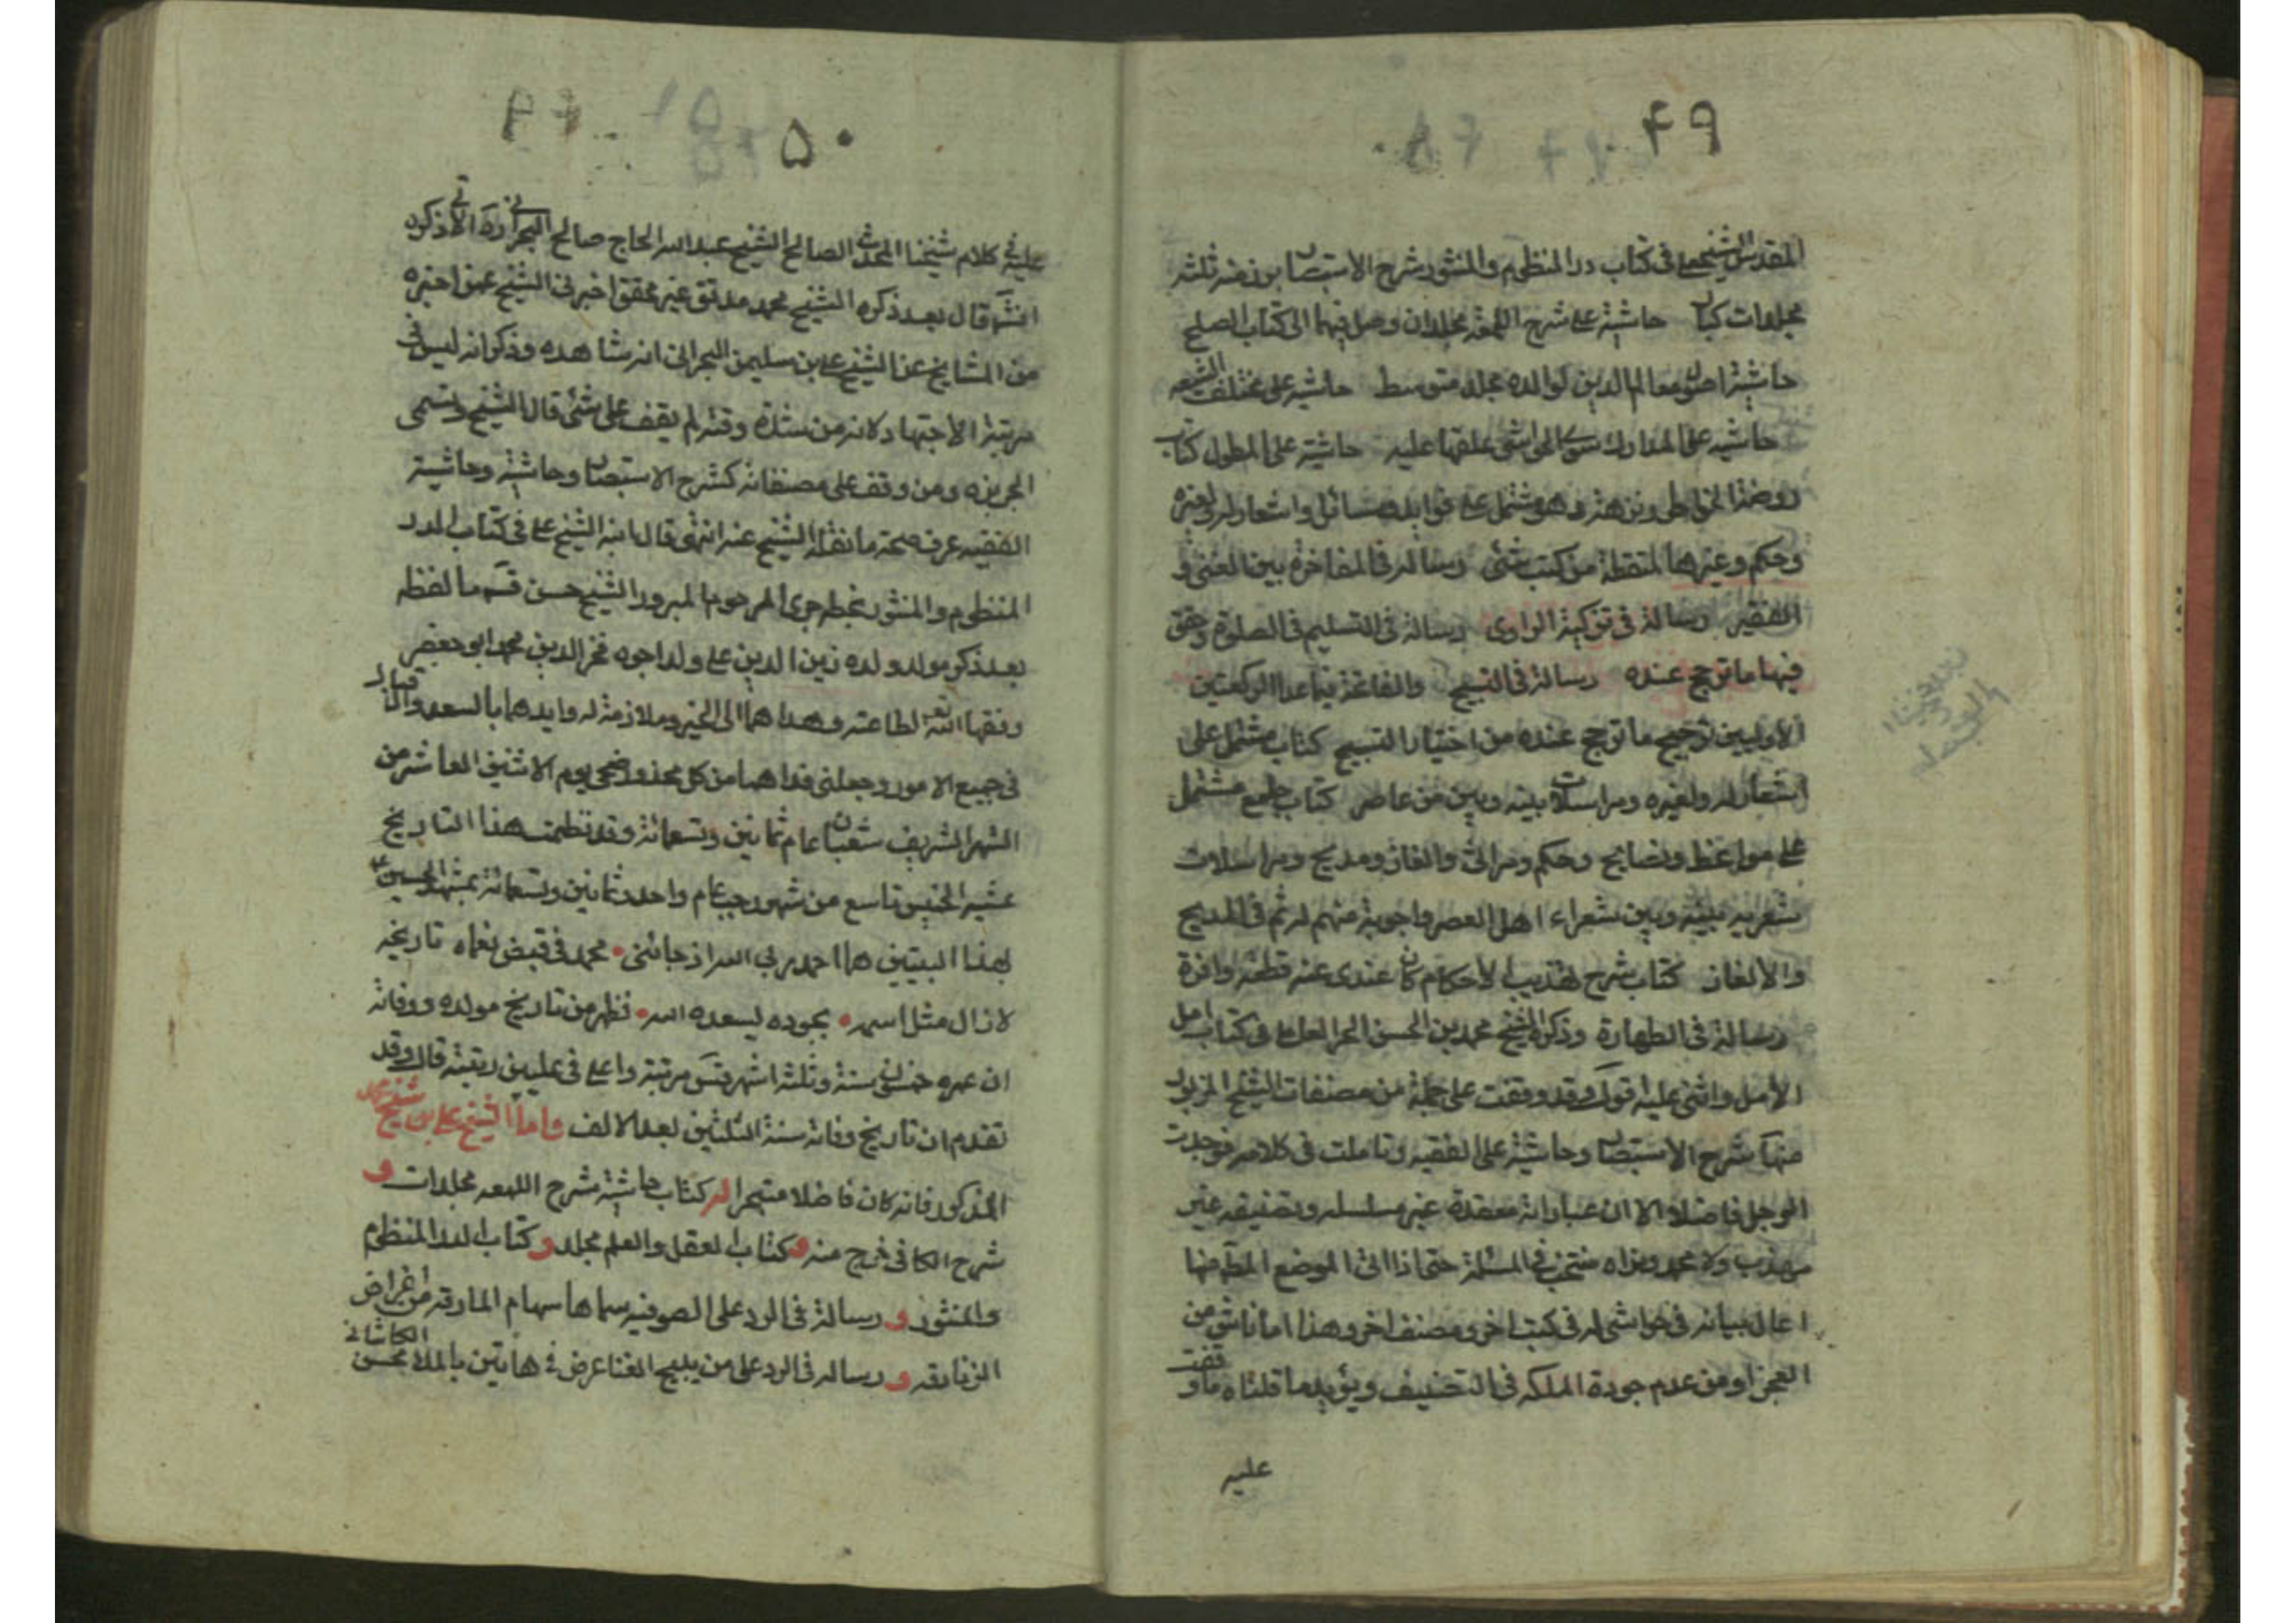 ۴۹
المقدس الشيخ علي في كتاب در المنظوم والمنثور شرح الاستبصار برز منه ثلثة
مجلدات كتاب حاشية على شرح اللمعة مجلدان وصل فيهما الى كتاب الصلح
حاشية اصول معالم الدين لوالده مجلد متوسط حاشيه على مختلف الشيعه
حاشيه على المدارك سوى الحواشي علقها عليه حاشية على المطول كتاب
روضة الخواطر ونزهة وهو مشتمل على فوايد ومسائل واشعار له ولغيره
وحكم وغيرها ملتقطة من كتب شتى رسالة في المفاخرة بين الغنى و
الفقير رسالة في تزكية الراوي رسالة في التسليم في الصلوة وحقق
فيها ما ترجح عنده رسالة في التسبيح والفاتحة فيما عدا الركعتين
الأوليين ترجيح ما ترجح عنده من اختيار التسبيح كتاب مشتمل على
اشعار له ولغيره ومراسلات بينه وبين من عاصر كتاب جامع مشتمل
على مواعظ ونصايح وحكم ومراثي والغاز ومديح ومراسلات
شعريه بينه وبين شعراء اهل العصر واجوبة منهم له ثم في المديح
والالغاز كتاب شرح تهذيب الاحكام كان عندي عنه قطعة وافرة
رسالة في الطهارة وذكره الشيخ محمد بن الحسن الحر العاملي في كتاب امل
الأمل واثنى عليه قوله وقد وقفت على جملة من مصنفات الشيخ المزبور
منها شرح الاستبصار وحاشية على الفقيه وتاملت في كلامه فوجدت
الرجل فاضلا الا ان عباراته معقدة غير مسلسله وتصنيفه غير
مهذب ولا محمد وتراه منتخب في المسئلة حتى اذا اتى الموضع المطلم منها
احال بيانه في حواشي له في كتب اخر ومصنف اخر وهذا اما ناش من
العجز او من عدم جودة الملكه في التصنيف ويؤيد ما قلناه ما وقفت
عليه
۵۰
عليه في كلام شيخنا المحدث الصالح الشيخ عبد الله الحاج صالح البحراني ره الاتي ذكره
انشه قال بعد ذكره الشيخ محمد مدقق غير محقق اخبرني الشيخ عمن اخبره
من المشايخ عن الشيخ علي بن سليمن البحراني انه شاهده وذكر انه ليس في
مرتبة الاجتهاد كانه من شدة وقته لم يقف على شئ قال الشيخ وتسمى
الجربزه ومن وقف على مصنفاته كشرح الاستبصار وحاشيته وحاشية
الفقيه عرف صحة ما نقله الشيخ عنه انتهى قال ابنه الشيخ علي في كتاب الدر
المنظوم والمنثور بخط جدي المرحوم المبرور الشيخ حسن قسه ما لفظه
بعد ذكر مولد ولده زين الدين علي ولد اخوه فخر الدين محمد ابو جعفر
وفقها الله تعه لطاعته وهداهما الى الخير وملازمة له وايدهما بالسعد والاقبال
في جميع الامور وجعلني فداهما من كل محذور ضحى يوم الاثنين العاشر من
الشهر الشريف شعبان عام ثمانين وتسعمائة وقد نظمت هذا التاريخ
عشية الخميس تاسع من شهر رجب عام واحد وثمانين وتسعمائة بمشهد الحسين ع
بهذا البيتين هما احمد ربي الله اذ جائني • محمد في قبض نعماه تاريخه
لازال مثل اسمه • بجوده ليسعده الله • فظهر من تاريخ مولده ووفاته
ان عمره خمسون سنة وثلثة اشهر قس مرتبته واعلى في عليين رتبته قال وقد
تقدم ان تاريخ وفاته سنة الثلثين بعد الالف واما الشيخ علي بن شيخ محمد
المذكور فانه كان فاضلا متبحرا له كتاب حاشية شرح اللمعه مجلدات و
شرح الكافي خرج منه و كتاب العقل والعلم مجلد و كتاب الدر المنظوم
والمنثور و رسالة في الرد على الصوفيه سماها سهام المارقه من اغراض
الزنادقه و رساله في الرد على من يبيح الغنا عرض في هاتين بالملا محسن الكاشاني